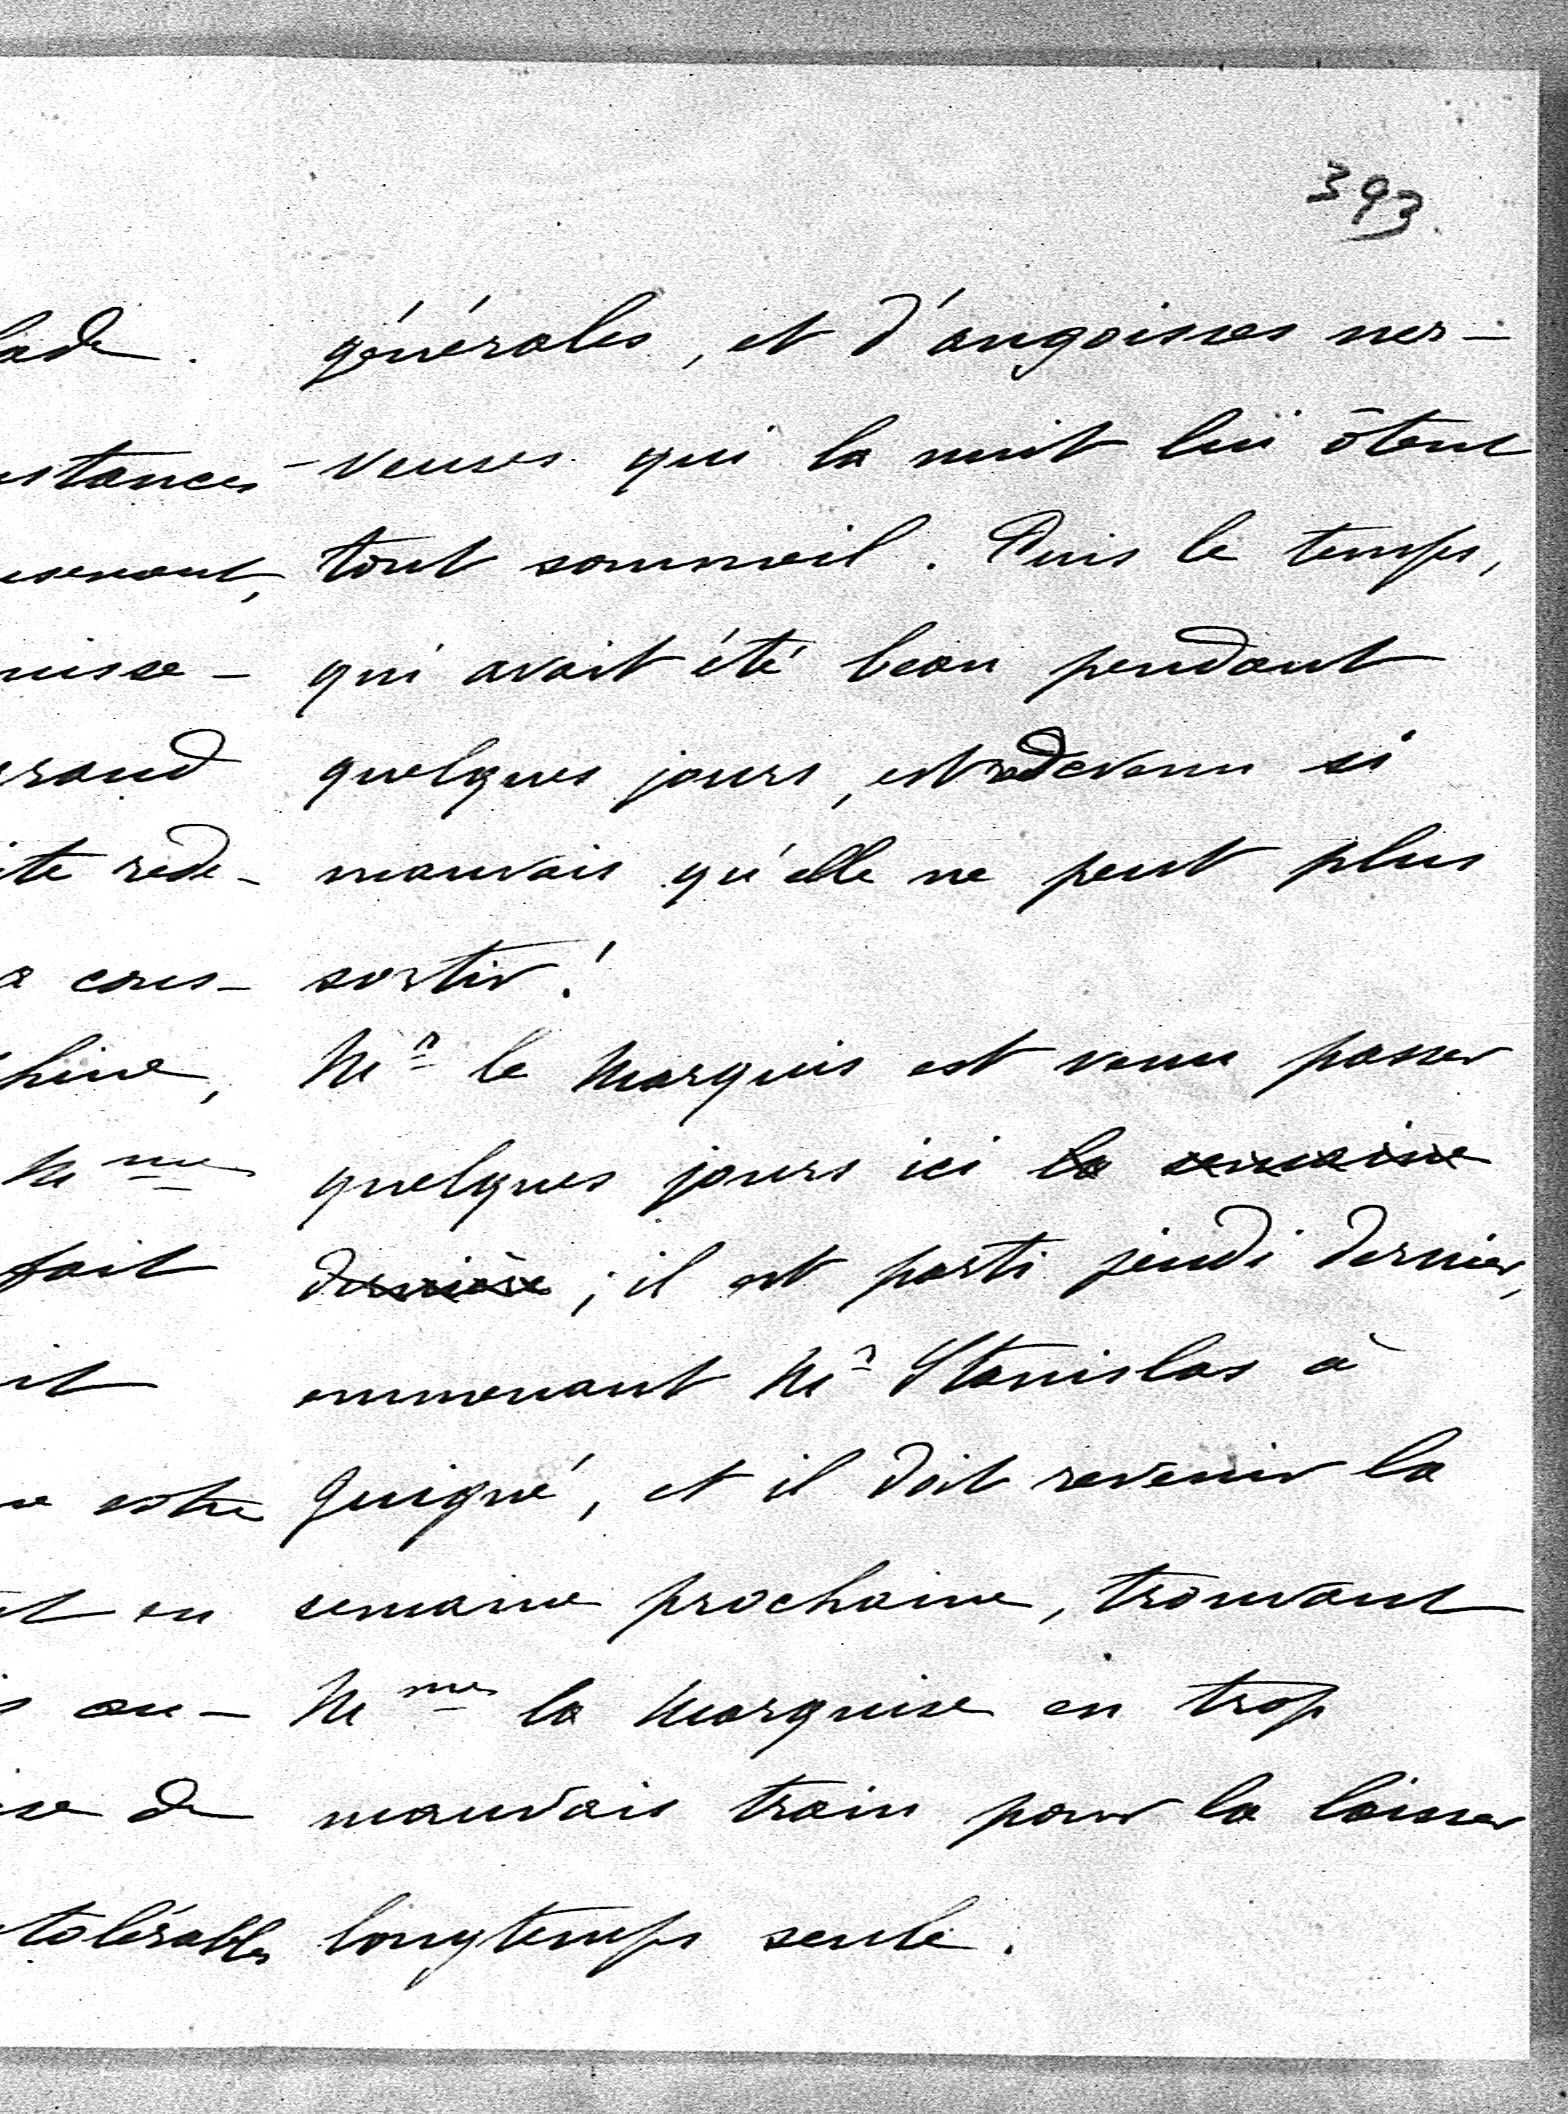 393.
générales, et d'angoisses ner-
-veuses qui la nuit lui ôtent
tout sommeil. Puis le temps,
qui avait été beau pendant
quelques jours, est redevenu si
mauvais qu'elle ne peut plus
sortir!
Mr le Marquis est venu passer
quelques jours ici la semaine
dernière; il est parti jeudi dernier,
emmenant Mr Stanislas à
Guigné, et il doit revenir la
semaine prochaine, trouvant
Mme la Marquise en trop
mauvais train pour la laisser
longtemps seule.
lade.
stances
nisse-
rand
ite rede-
a cons-
hine,
Mme
fait
it
t en
s au-
se de
tolérables